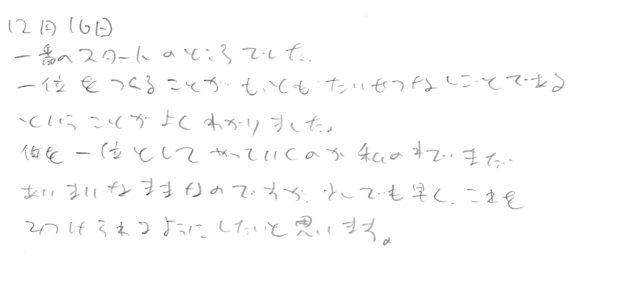 12月16日
一番のスタートのところでした。
一位をつくることがもっともたいせつなしごとである
ということがよくわかりました。
何を一位としてやっていくのか私の中でまだ
あいまいなままなのですが、少しでも早く、これを
みつけられるようにしたいと思います。